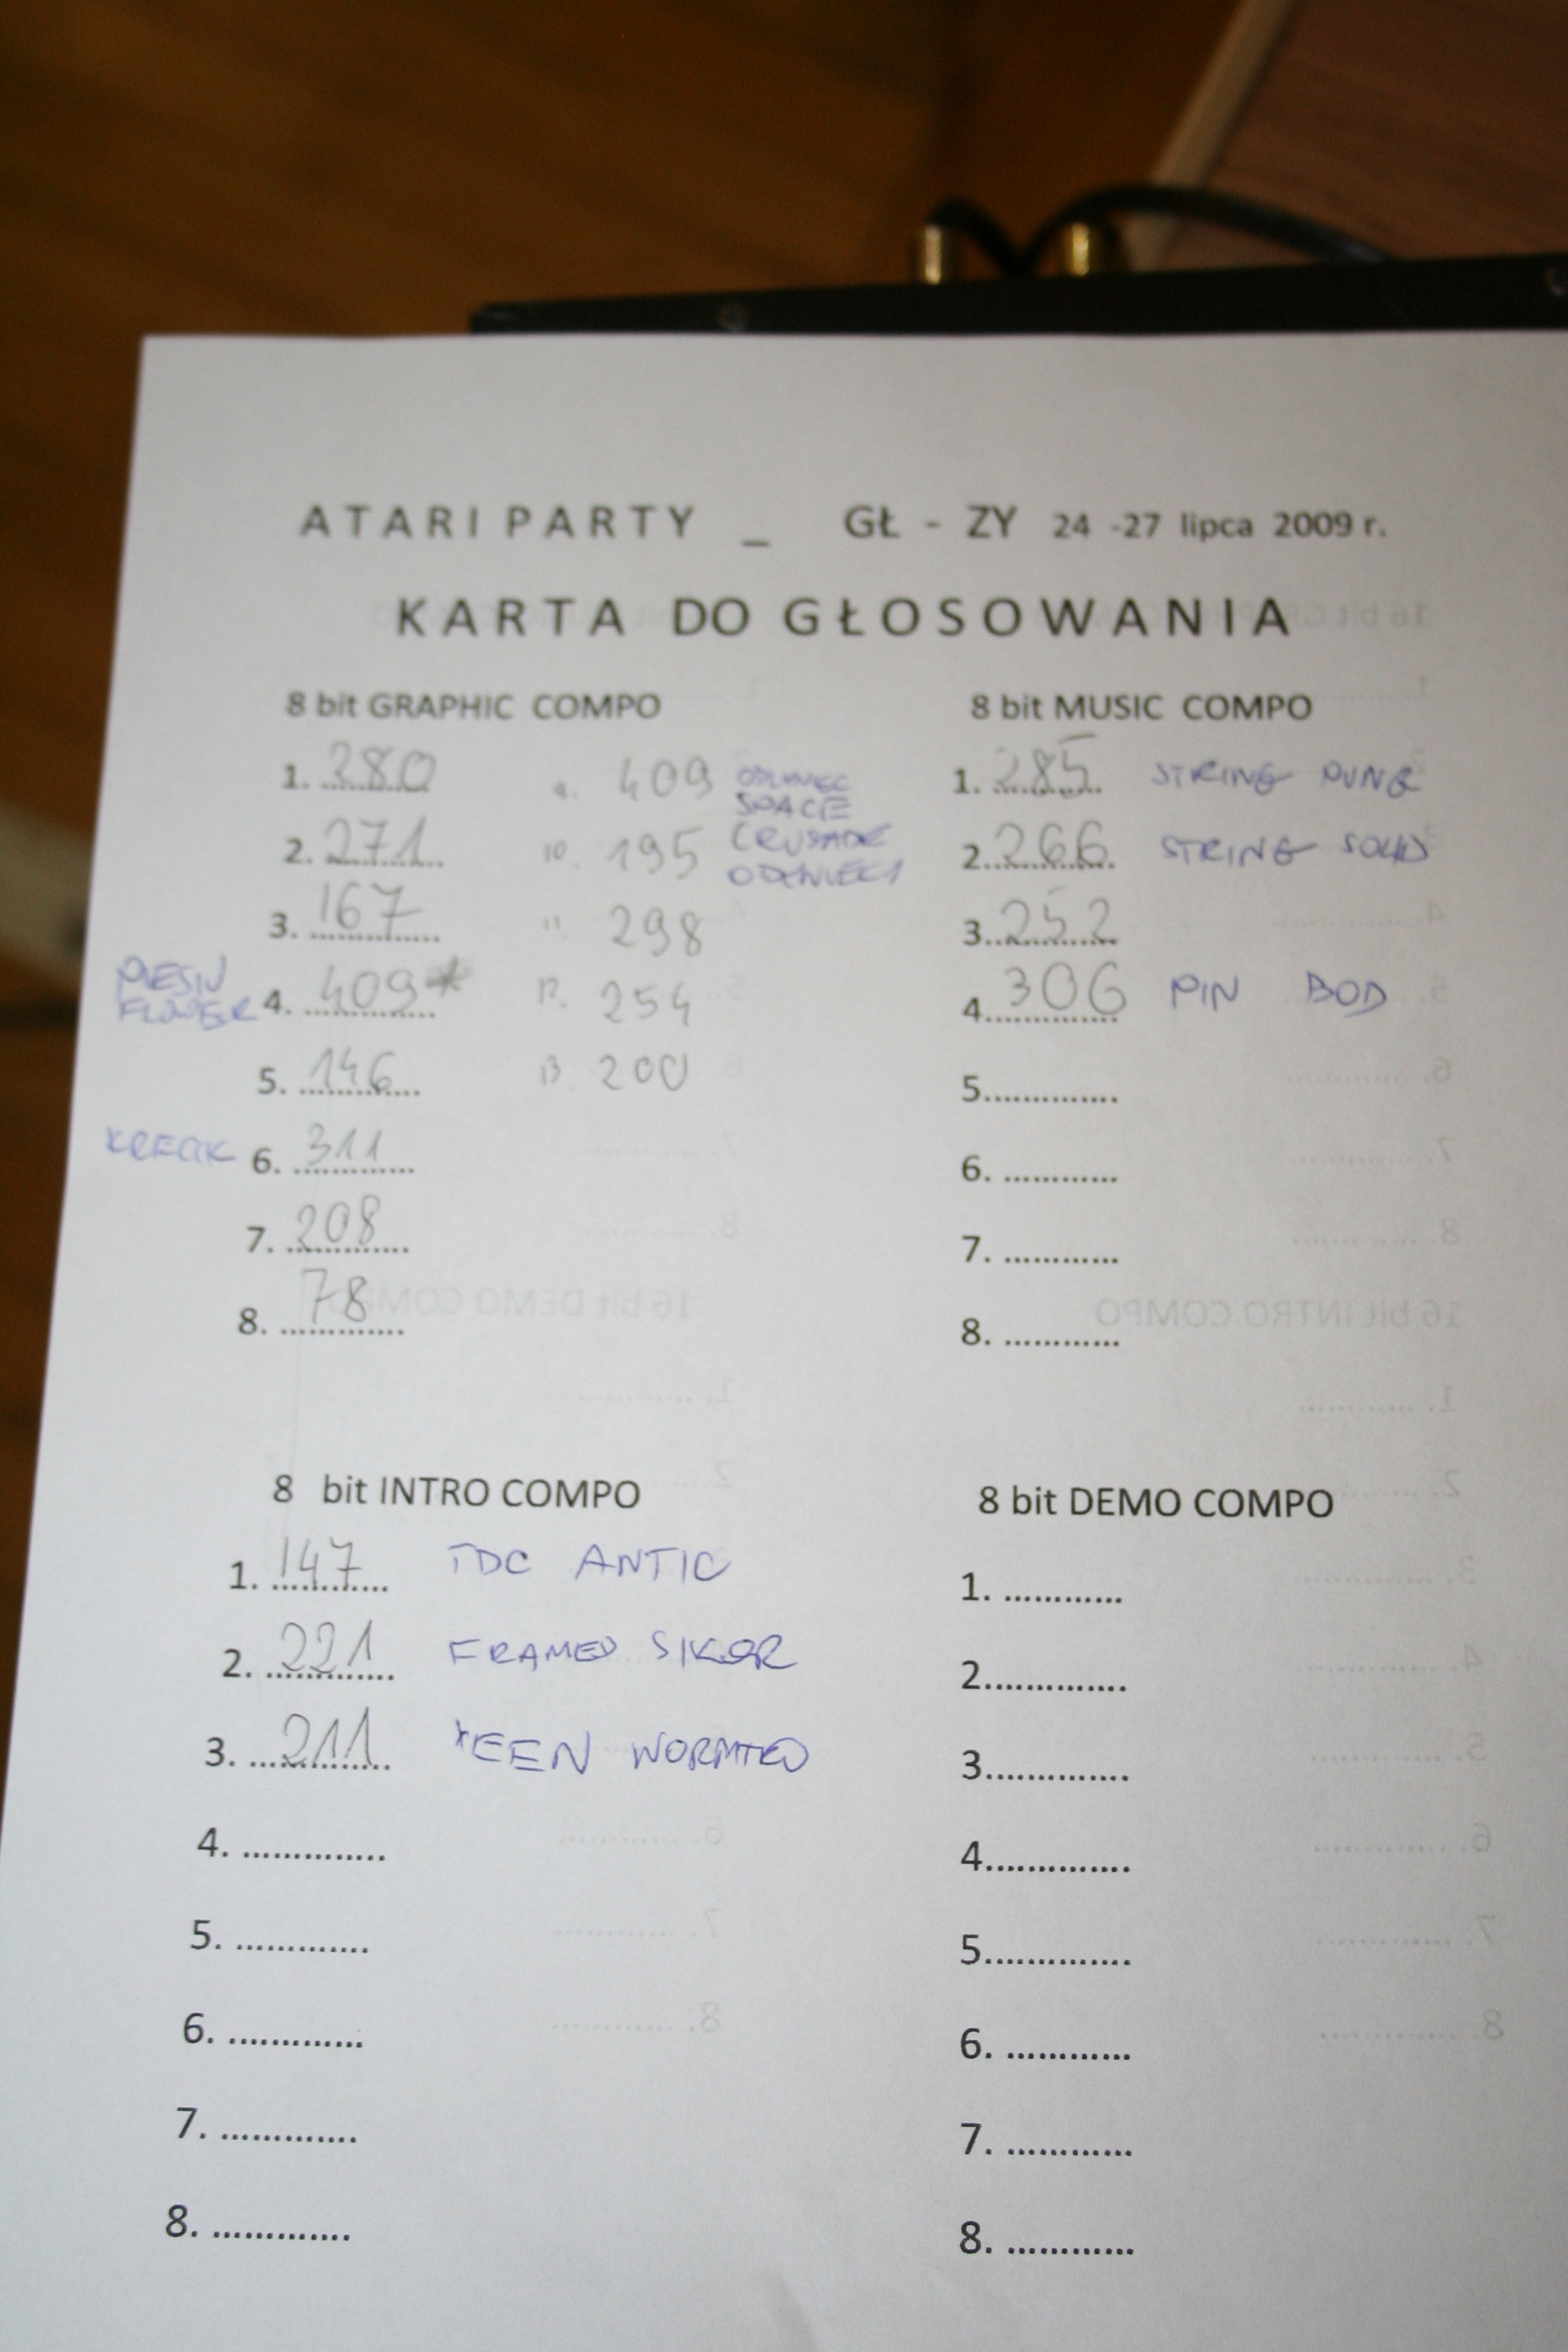 ATARI PARTY _ GŁ - ZY 24 -27 lipca 2009 r.
KARTA DO GŁOSOWANIA
8 bit GRAPHIC COMPO
1. 280
2. 271
3. 167
FLOWER 4. 409*
5. 146
6. 311
7. 208
8. 78
9. 409
SPACE
10. 195 CRUSADE
11. 298
12. 254
13. 200
8 bit MUSIC COMPO
1. 285 STRING
2. 266 STRING SOLID
3. 252
4. 306 PIN BOD
5.
6.
7.
8.
8 bit INTRO COMPO
1. 147 TDC ANTIC
2. 221 FRAMED SIKOR
3. 211 XEEN
4.
5.
6.
7.
8.
8 bit DEMO COMPO
1.
2.
3.
4.
5.
6.
7.
8.